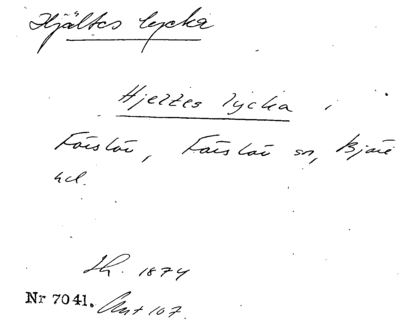 Hjältes lycka
Hjeltes lycka i
Förslöv, Förslöv sn, Bjäre
hd.
Lh. 1874
Nr 7041. Ant 107.